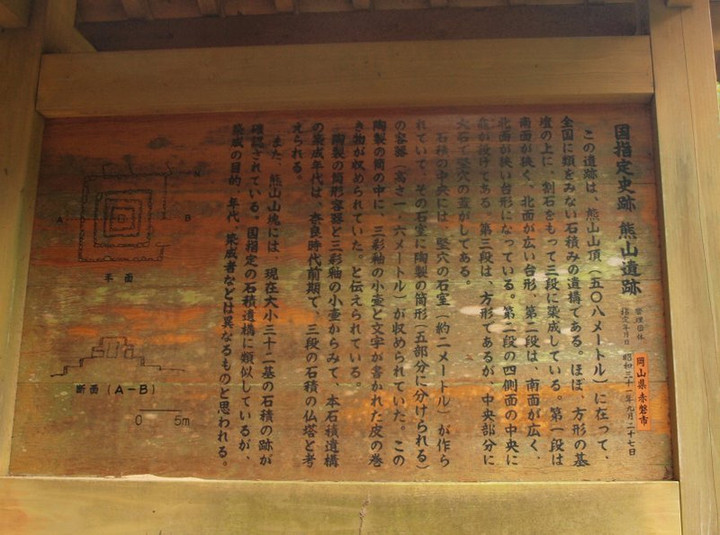 国指定史跡 熊山遺跡
管理団体 岡山県赤磐市
指定年月日 昭和三十一年九月二十七日
この遺跡は、熊山山頂(五〇八メートル)に在って、
全国に類をみない石積みの遺構である。ほぼ、方形の基
壇の上に、割石をもって三段に築成している。第一段は
南面が狭く、北面が広い台形、第二段は、南面が広く、
北面が狭い台形になっている。第二段の四側面の中央に
龕が設けてある。第三段は、方形であるが、中央部分に
大石で竪穴の蓋がしてある。
石積の中央には、竪穴の石室(約二メートル)が作ら
れていて、その石室に陶製の筒形(五部分に分けられる)
の容器(高さ一・六メートル)が収められていた。この
陶製の筒の中に、三彩釉の小壷と文字が書かれた皮の巻
き物が収められていた。と伝えられている。
陶製の筒形容器と三彩釉の小壷からみて、本石積遺構
の築成年代は、奈良時代前期で、三段の石積の仏塔と考
えられる。
また、熊山山塊には、現在大小三十二基の石積の跡が
確認されている。国指定の石積遺構に類似しているが、
築成の目的、年代、築成者などは異なるものと思われる。
N
A
B
平面
断面(A-B)
0 5m